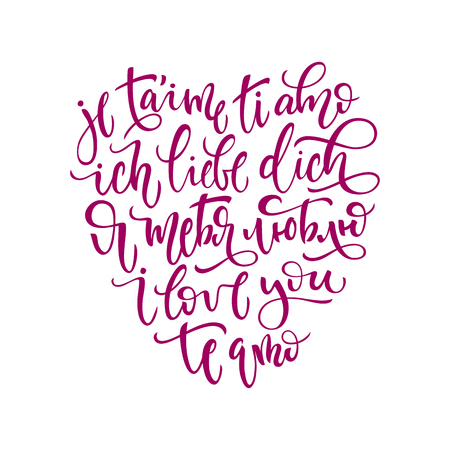 je t'aime ti amo
ich liebe dich
я тебя люблю
i love you
te amo